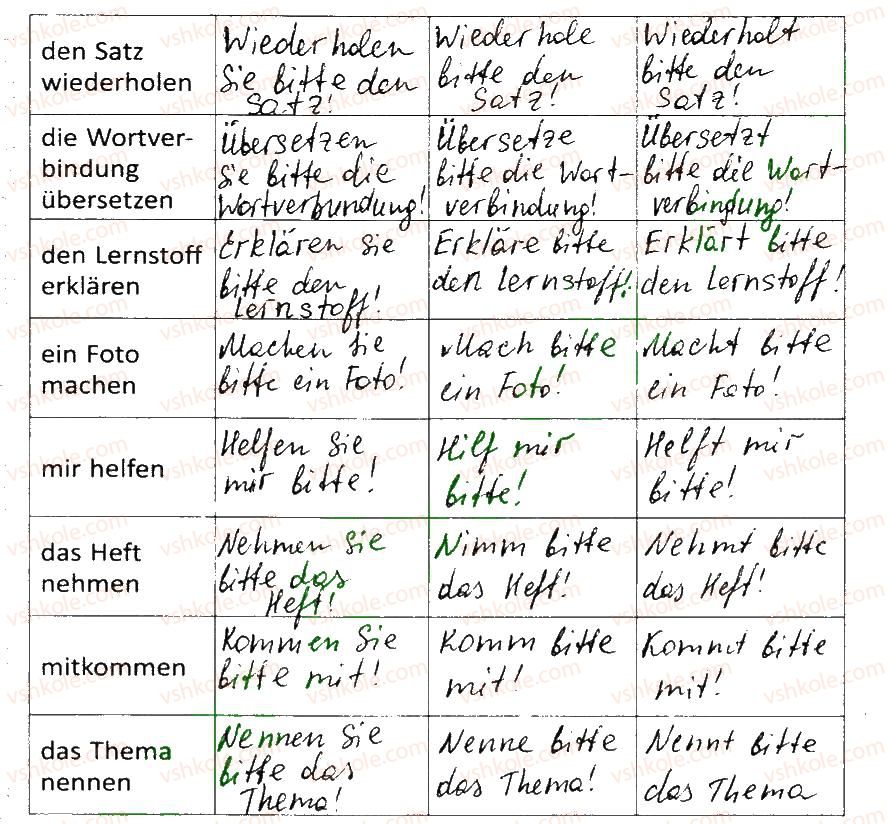 den Satz
wiederholen
Wiederholen
Sie bitte den
Satz!
Wiederhole
bitte den
Satz!
Wiederholt
bitte den
Satz!
die Wortver-
bindung
übersetzen
Übersetzen
Sie bitte die
Wortverbundung!
Übersetze
bitte die Wort-
verbindung!
Übersetzt
bitte die Wort-
verbingung!
den Lernstoff
erklären
Erklären Sie
bitte den
Lernstoff!
Erkläre bitte
den Lernstoff!
Erklärt bitte
den Lernstoff!
ein Foto
machen
Machen Sie
bitte ein Foto!
Mach bitte
ein Foto!
Macht bitte
ein Foto!
mir helfen
Helfen Sie
mir bitte!
Hilf mir
bitte!
Helft mir
bitte!
das Heft
nehmen
Nehmen Sie
bitte das
Heft!
Nimm bitte
das Heft!
Nehmt bitte
das Heft!
mitkommen
Kommen Sie
bitte mit!
Komm bitte
mit!
Kommt bitte
mit!
das Thema
nennen
Nennen Sie
bitte das
Thema!
Nenne bitte
das Thema!
Nennt bitte
das Thema
vshkole.com